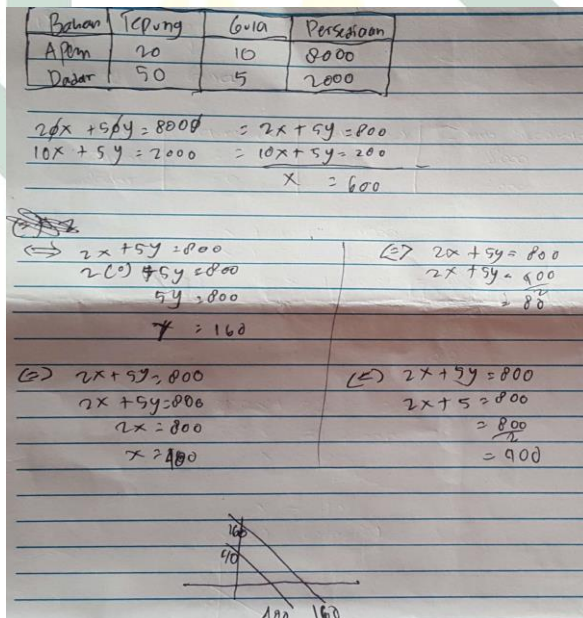 Bahan Tepung Gula Persediaan
Apem 20 10 8000
Dadar 50 5 2000
20x + 50y = 8000 = 2x + 5y = 800
10x + 5y = 2000 = 10x + 5y = 200
x = 600
⇔ 2x + 5y = 800
2(0) + 5y = 800
5y = 800
y = 160
⇔ 2x + 5y = 800
2x + 5y = 400
2
= 80
⇔ 2x + 5y = 800
2x + 5y = 800
2x = 800
x = 400
⇔ 2x + 5y = 800
2x + 5 = 800
= 800
2
= 400
160
40
400 160